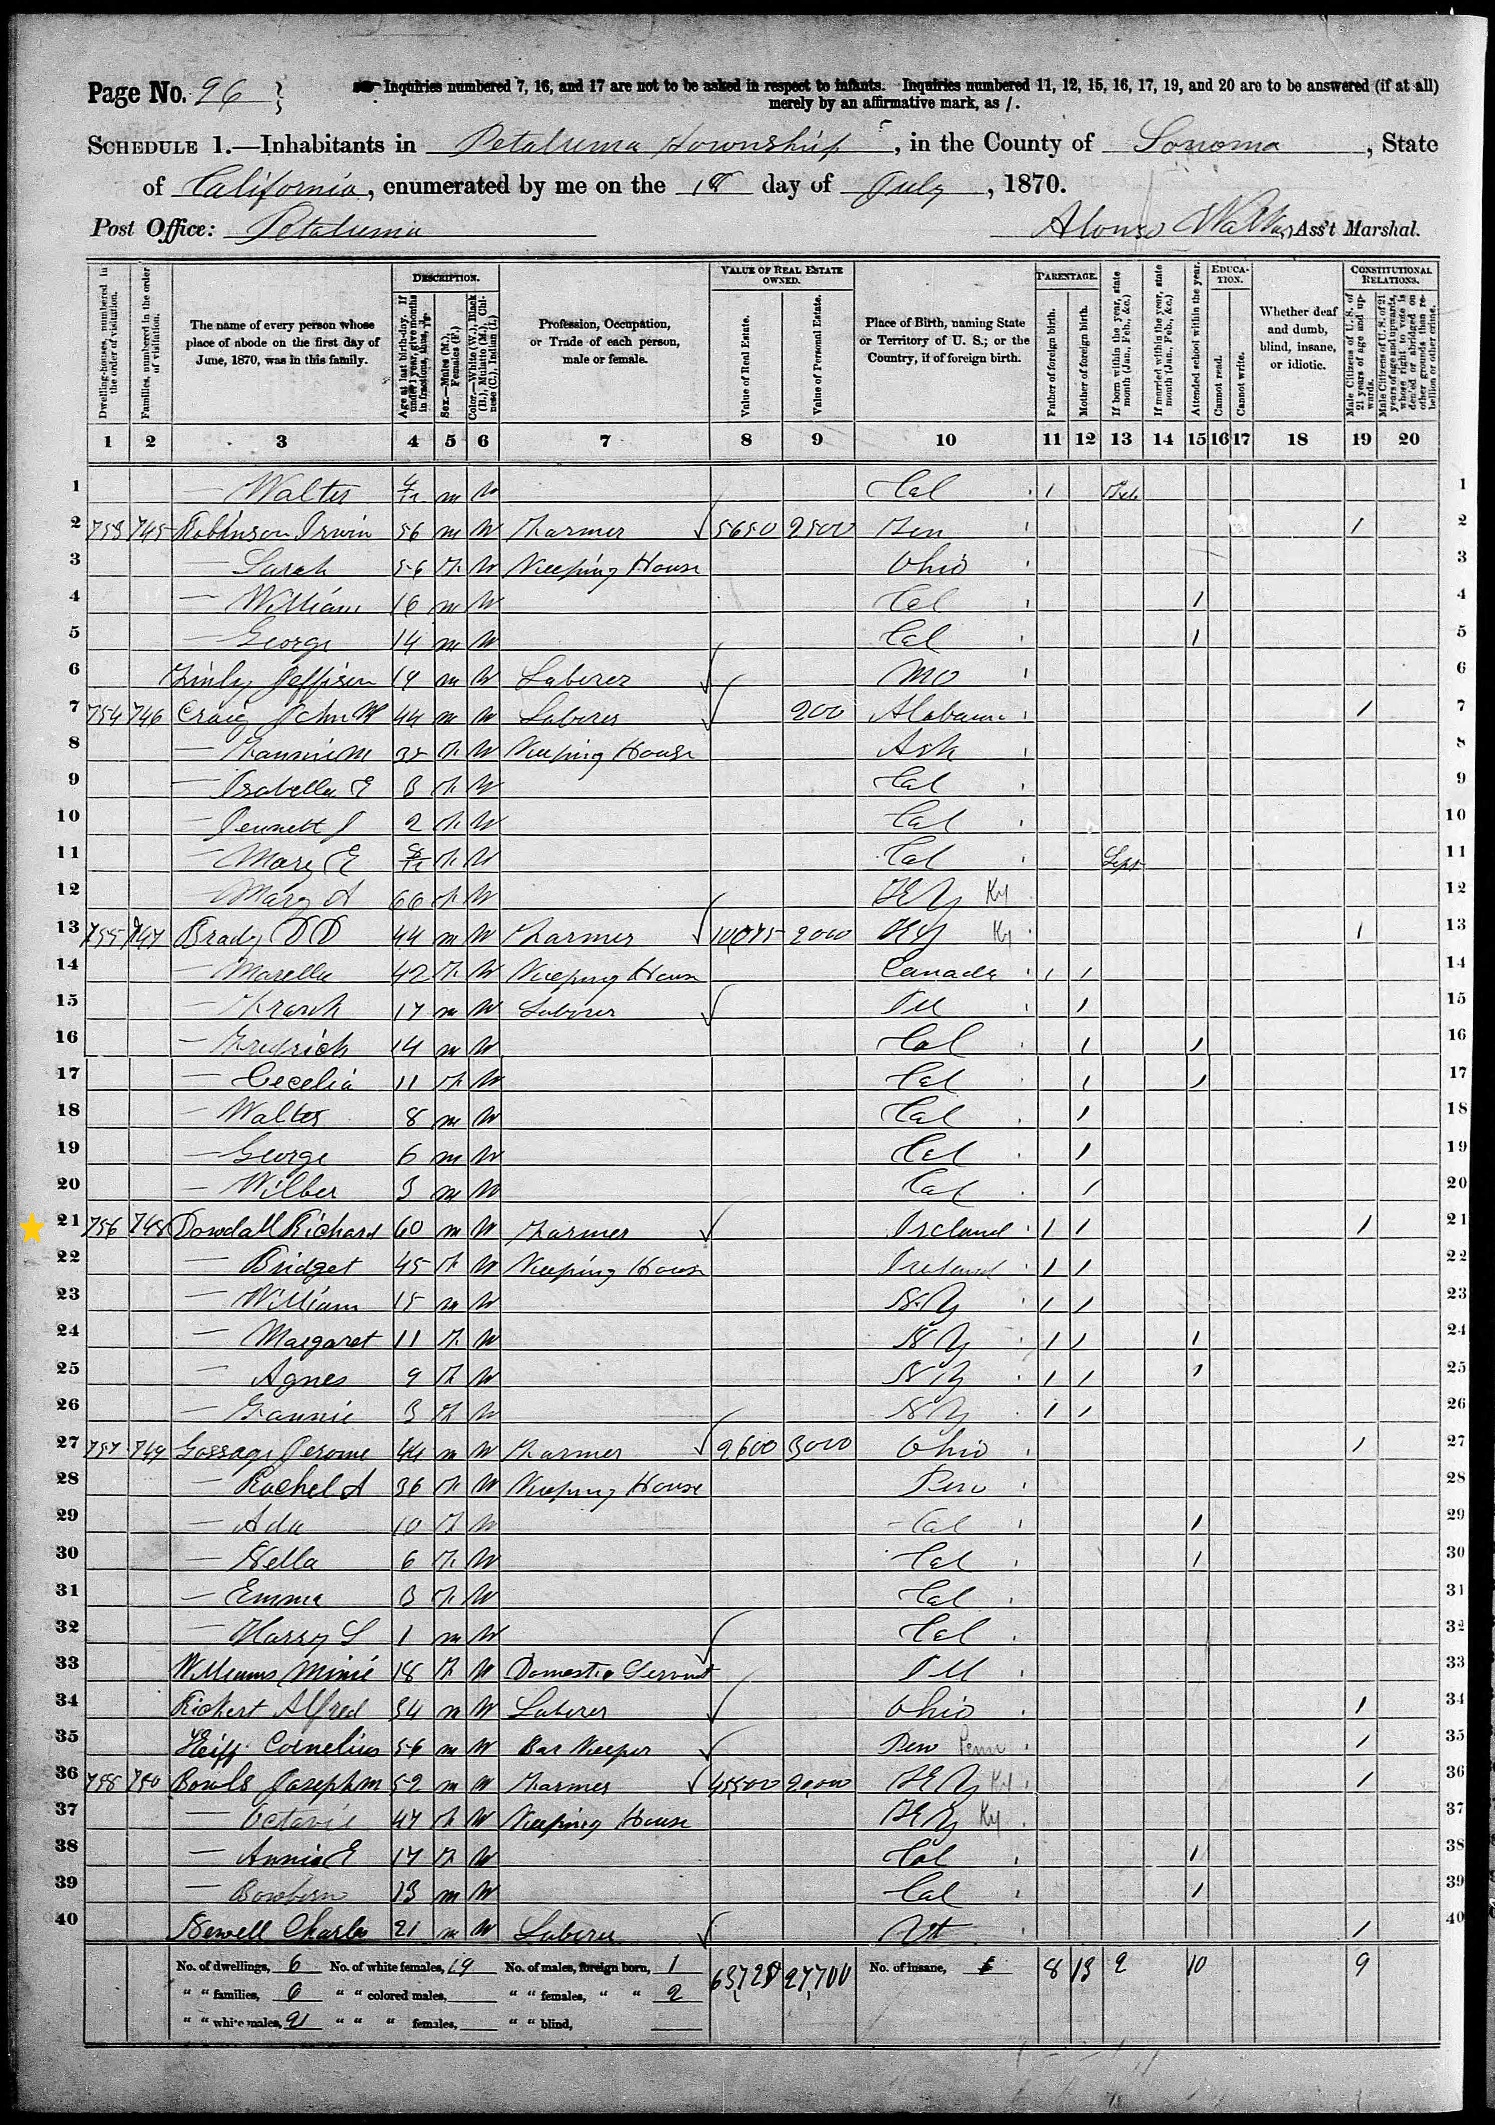 Page No. 96
Inquiries numbered 7, 16, and 17 are not to be asked in respect to infants. Inquiries numbered 11, 12, 15, 16, 17, 19, and 20 are to be answered (if at all)
merely by an affirmative mark, as /.
SCHEDULE 1.—Inhabitants in Petaluma Township, in the County of Sonoma, State
of California, enumerated by me on the 1st day of July, 1870.
Post Office: Petaluma Ass't Marshal.
DESCRIPTION. VALUE OF REAL ESTATE OWNED. PARENTAGE. EDUCATION. CONSTITUTIONAL RELATIONS.
Dwelling-houses, numbered in the order of visitation. Families, numbered in the order of visitation. The name of every person whose place of abode on the first day of June, 1870, was in this family. Age at last birth-day. If under 1 year, give months in fractions, thus, Sex.—Males (M.), Females (F.) Color.—White (W.), Black (B.), Mulatto (M.), Chinese (C.), Indian (I.) Profession, Occupation, or Trade of each person, male or female. Value of Real Estate. Value of Personal Estate. Place of Birth, naming State or Territory of U. S.; or the Country, if of foreign birth. Father of foreign birth. Mother of foreign birth. If born within the year, state month (Jan., Feb., &c.) If married within the year, state month (Jan., Feb., &c.) Attended school within the year. Cannot read. Cannot write. Whether deaf and dumb, blind, insane, or idiotic. Male Citizens of U. S. of 21 years of age and upwards. Male Citizens of U. S. of 21 years of age and upwards, whose right to vote is denied or abridged on other grounds than rebellion or other crime.
1 2 3 4 5 6 7 8 9 10 11 12 13 14 15 16 17 18 19 20
1 — Walter m W Cal / Feb 1
2 753 745 Robinson Irwin 56 m W Farmer 5650 2500 Ten / 2
3 — Sarah 56 F W Keeping House Ohio 3
4 — William 16 m W Cal / 4
5 — George 14 m W Cal / 5
6 19 m W Laborer Mo 6
7 754 746 Craig John W 44 m W Laborer 200 Alabama / 7
8 — Fannie M 35 F W Keeping House Ark 8
9 — Isabella E 3 F W Cal 9
10 — J 2 F W Cal 10
11 — Mary E F W Cal Sept 11
12 — Mary A 66 F W KY Ky 12
13 755 747 Brady D D 44 m W Farmer 10,075 2000 KY Ky / 13
14 — 42 F W Keeping House Canada / / 14
15 — Frank 17 m W Laborer Ill / 15
16 — Fredrick 14 m W Cal / / 16
17 — Cecelia 11 F W Cal / / 17
18 — Walter 8 m W Cal / 18
19 — George 6 m W Cal / 19
20 — Wilber 3 m W Cal / 20
21 756 748 Dowdall Richard 60 m W Farmer Ireland / / / 21
22 — Bridget 45 F W Keeping House Ireland / / 22
23 — William 15 m W N.Y / / 23
24 — Margaret 11 F W N Y / / / 24
25 — Agnes 9 F W N Y / / / 25
26 — Fannie 3 F W N Y / / 26
27 757 749 Gossage Jerome 44 m W Farmer 2600 3000 Ohio / 27
28 — Rachel A 36 F W Keeping House Pen 28
29 — Ada 10 F W Cal / 29
30 — Nella 6 F W Cal / 30
31 — Emma 3 F W Cal 31
32 — Harry S 1 m W Cal 32
33 Williams Minie 18 F W Domestic Servant Ill 33
34 Richert Alfred 34 m W Laborer Ohio / 34
35 Cornelius 56 m W Bar Keeper Pen Penn / 35
36 758 750 Bowls Joseph M 52 m W Farmer 45,500 20,000 KEY Ky / 36
37 — Octavie 47 F W Keeping House KEY Ky 37
38 — Annie E 17 F W Cal / 38
39 — 13 m W Cal / 39
40 Newell Charles 21 m W Laborer Vt / 40
No. of dwellings, 6 No. of white females, 19 No. of males, foreign born, 1 No. of insane, 8 13 2 10 9
" " families, 6 " " colored males, " " females, " " 2
" " white males, 21 " " " females, " " blind,